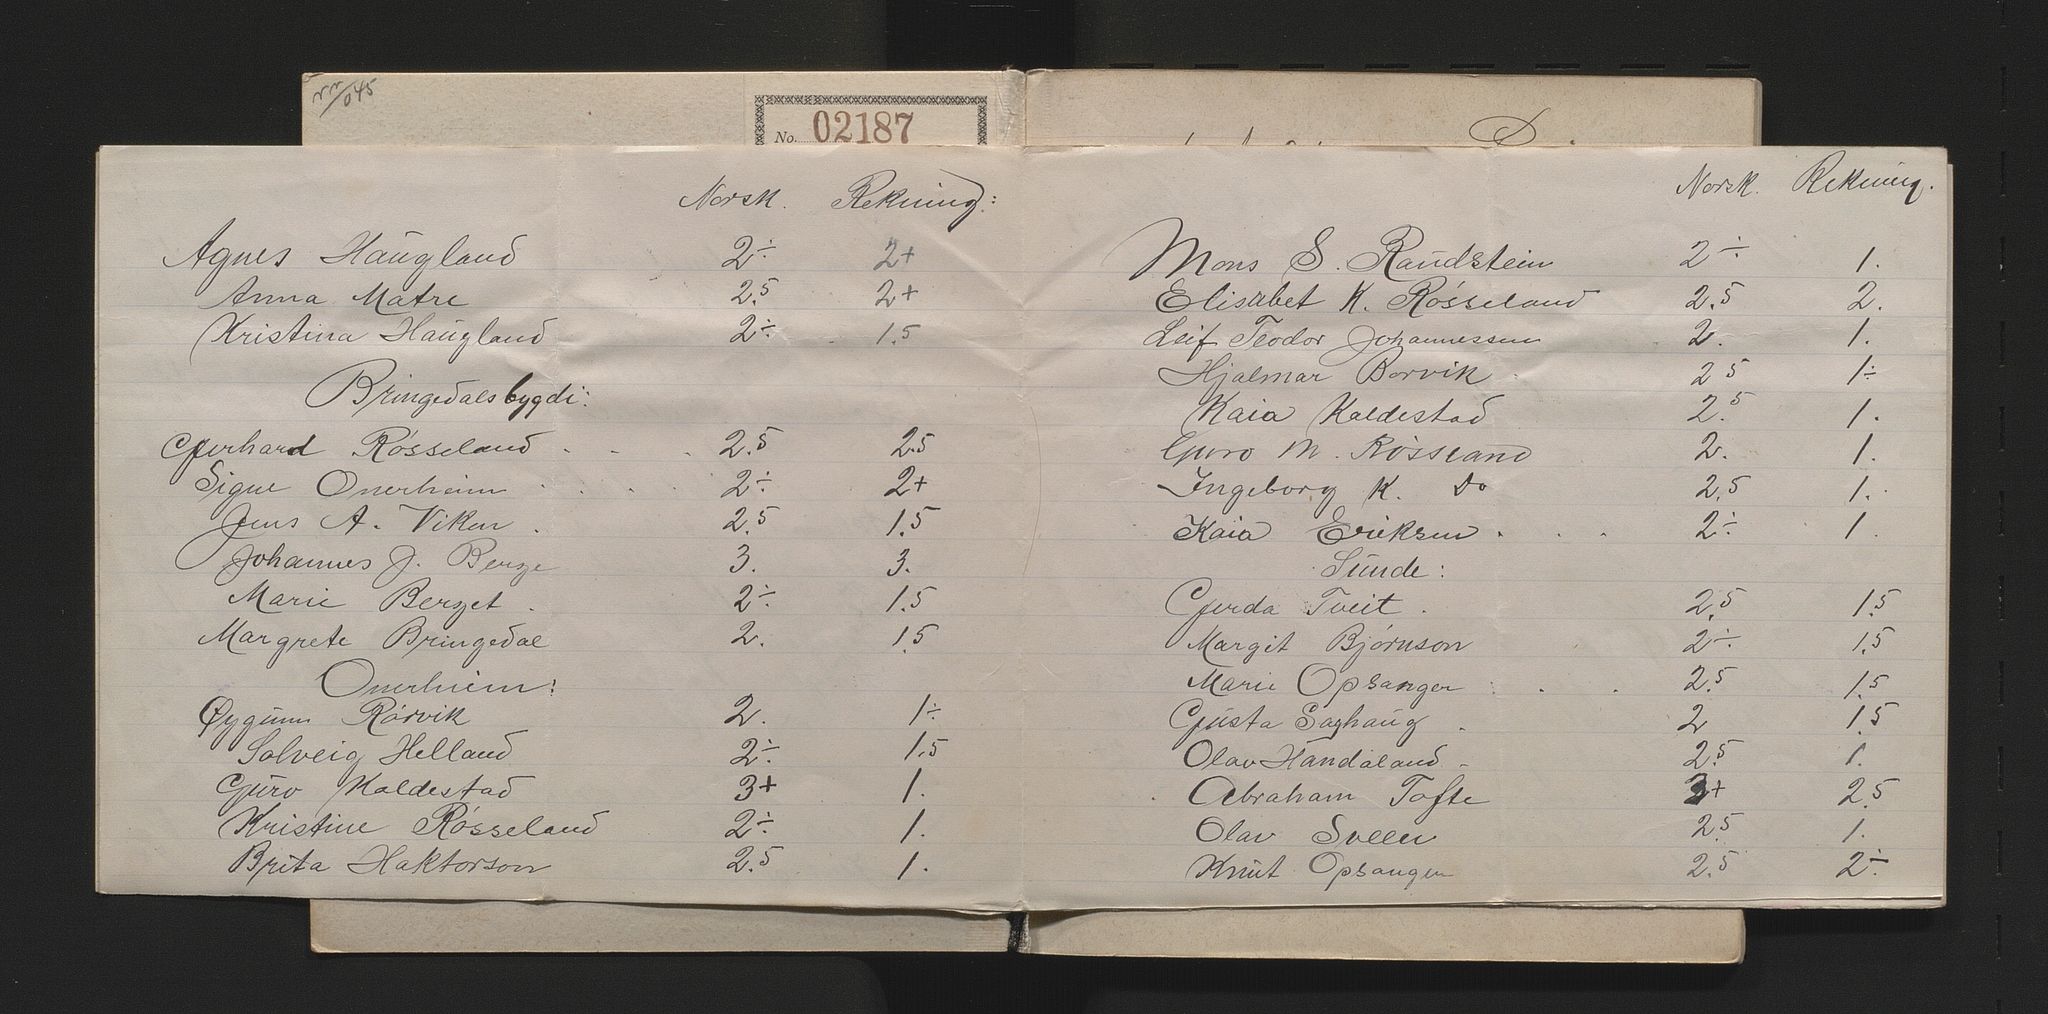 No. 02187
Norsk. Rekning:
Agnes Haugland 2÷ 2+
Anna Matre 2.5 2+
Kristina Haugland 2÷ 1.5
Bringedalsbygdi:
Gjerhard Røsseland 2.5 2.5
Signe Onerheim 2÷ 2+
Jens A. Viken 2.5 1.5
Johannes J. Berge 3. 3.
Marie Berget 2÷ 1.5
Margrete Bringedal 2. 1.5
Onerheim:
Øygunn Rørvik 2. 1÷
Solveig Helland 2÷ 1.5
Guro Kaldestad 3+ 1.
Kristine Røsseland 2÷ 1.
Brita Haktorson 2.5 1.
Norsk. Rekning.
Mons S. Raudstein 2÷ 1.
Elisabet K. Røsseland 2.5 2.
Leif Teodor Johannessen 2. 1.
Hjalmar Borvik 2.5 1÷
Kaia Kaldestad 2.5 1.
Guro M. Røssland 2. 1.
Ingeborg K. Do 2.5 1.
Kaia Eriksen 2÷ 1.
Sunde:
Gjerda Tveit 2.5 1.5
Margit Bjørnson 2÷ 1.5
Marie Opsanger 2.5 1.5
Gusta Saghaug 2 1.5
Olav Handaland 2.5 1.
Abraham Tofte 3+ 2.5
Olav Sveen 2.5 1.
Knut Opsanger 2.5 2÷